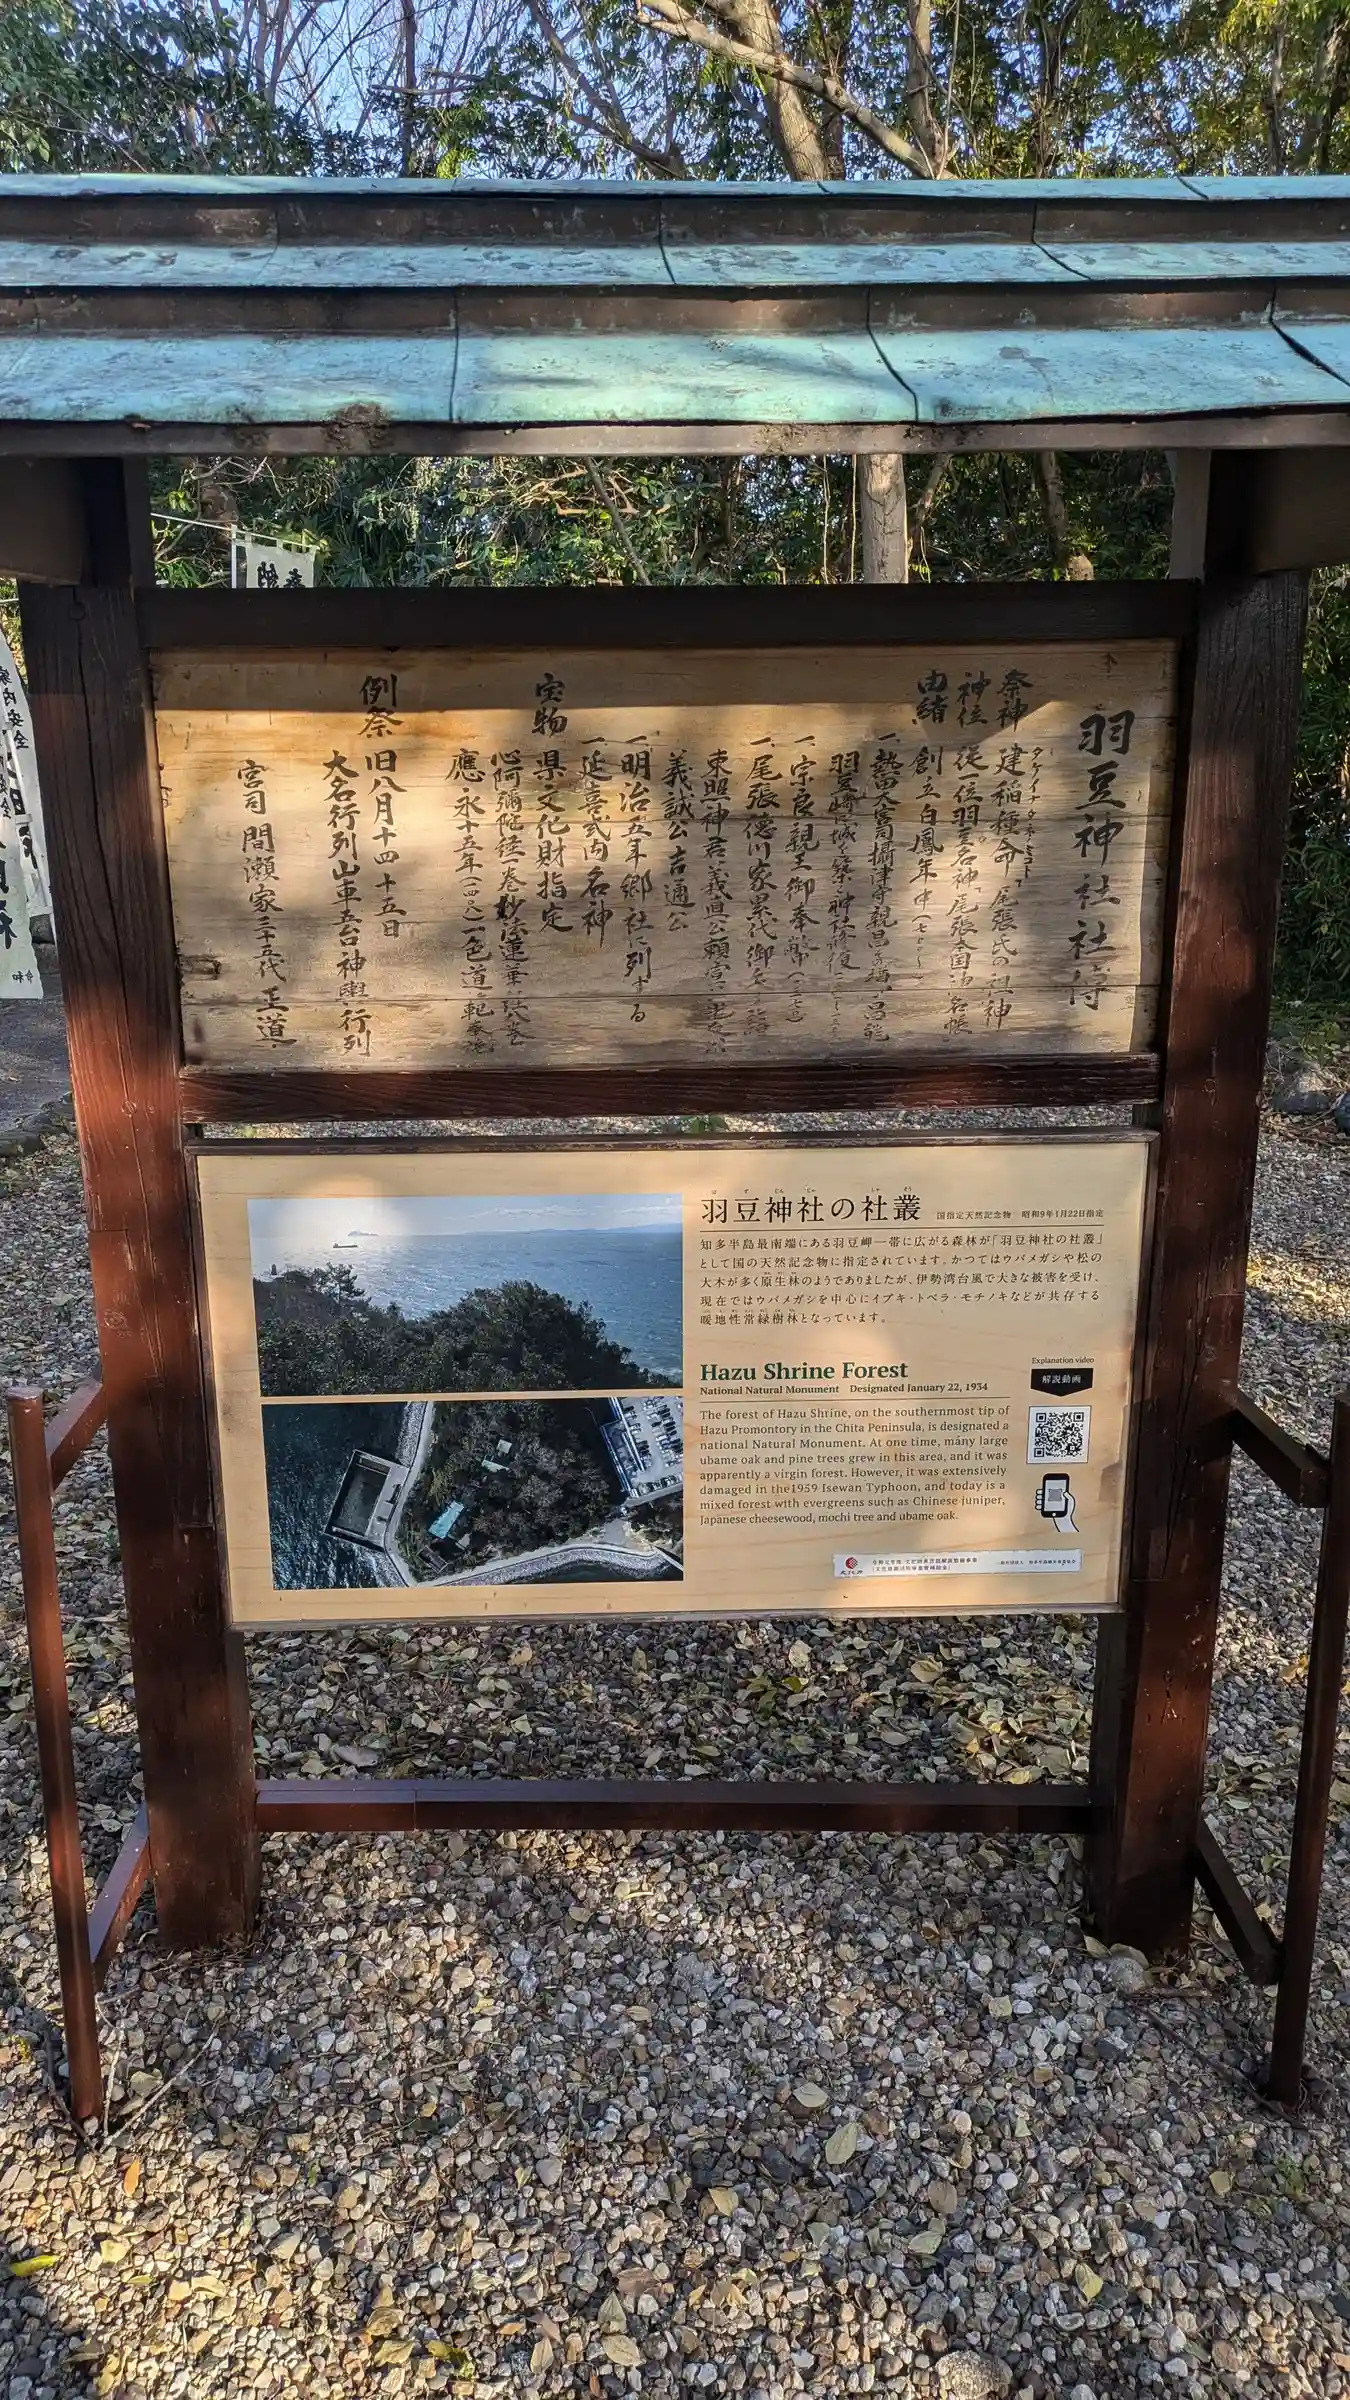 羽豆神社社傳
祭神 建稲種命「尾張氏の祖神
タケイナダネノミコト
神位 従一位羽豆名神「尾張本国神名帳
由緒 創立白鳳年中
一、熱田大宮司攝津守親昌 昌能
羽豆崎に城を築 神社修復
一、宗良親王御奉幣
一、尾張徳川家累代御
東照神君 義直公
義誠公 吉通公
一、明治五年郷社に列する
一、延喜式内名神
宝物 県文化財指定
心阿彌陀経一巻 妙法蓮華
應永十五年(一四〇八)一色道範奉
例祭 旧八月十四十五日
大名行列山車五台神輿行列
宮司 間瀬家三十五代 正道
羽豆神社の社叢
国指定天然記念物 昭和9年1月22日指定
知多半島最南端にある羽豆岬一帯に広がる森林が「羽豆神社の社叢」
として国の天然記念物に指定されています。かつてはウバメガシや松の
大木が多く原生林のようでありましたが、伊勢湾台風で大きな被害を受け、
現在ではウバメガシを中心にイブキ・トベラ・モチノキなどが共存する
暖地性常緑樹林となっています。
Hazu Shrine Forest
National Natural Monument Designated January 22, 1934
The forest of Hazu Shrine, on the southernmost tip of
Hazu Promontory in the Chita Peninsula, is designated a
national Natural Monument. At one time, many large
ubame oak and pine trees grew in this area, and it was
apparently a virgin forest. However, it was extensively
damaged in the1959 Isewan Typhoon, and today is a
mixed forest with evergreens such as Chinese juniper,
Japanese cheesewood, mochi tree and ubame oak.
Explanation video
解説動画
文化庁